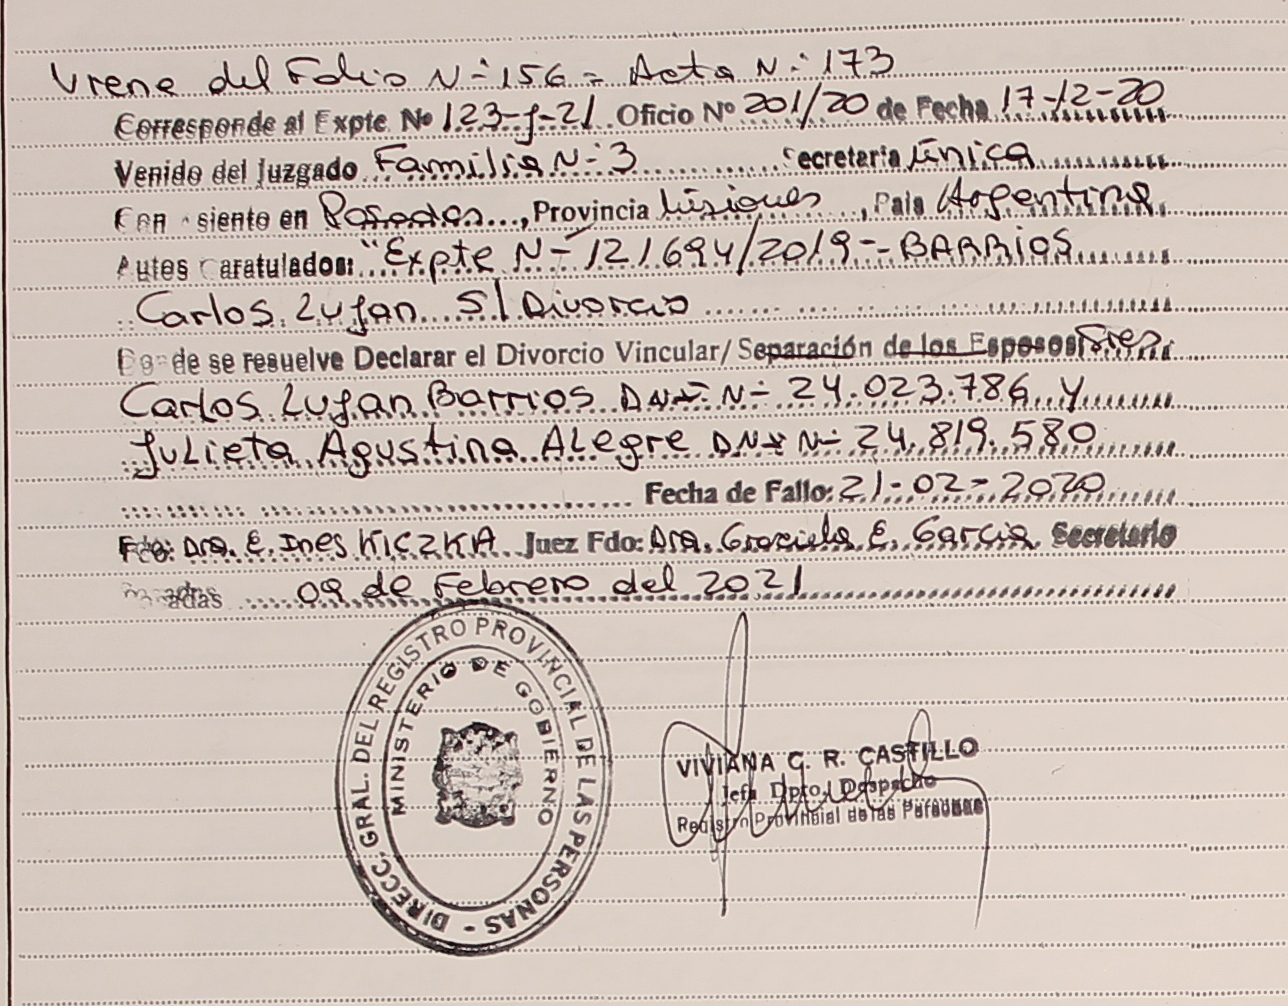 Viene del Folio N-°156 = Acta N-° 173
Corresponde al Expte Nº 123-J-21 Oficio Nº 201/20 de Fecha 17-12-20
Venido del Juzgado Familia N-° 3 Secretaria Única
Con asiento en Posadas, Provincia Misiones, Pais Argentina
Autos Caratulados: "Expte N-° 121694/2019-- BARRIOS
Carlos Lujan S/ Divorcio
Donde se resuelve Declarar el Divorcio Vincular/Separación de los Esposos: Sres
Carlos Lujan Barrios DNI N-° 24.023.786 y
Julieta Agustina Alegre DNI N-° 24.819.580
Fecha de Fallo: 21-02-2020
Fdo: Dra. E. Ines KICZKA Juez Fdo: Dra. Graciela E. Garcia Secretario
Posadas 09 de Febrero del 2021
DIRECC. GRAL. DEL REGISTRO PROVINCIAL DE LAS PERSONAS -
MINISTERIO DE GOBIERNO
VIVIANA C. R. CASTILLO
Jefa Dpto. Despacho
Registro Provincial de las Personas